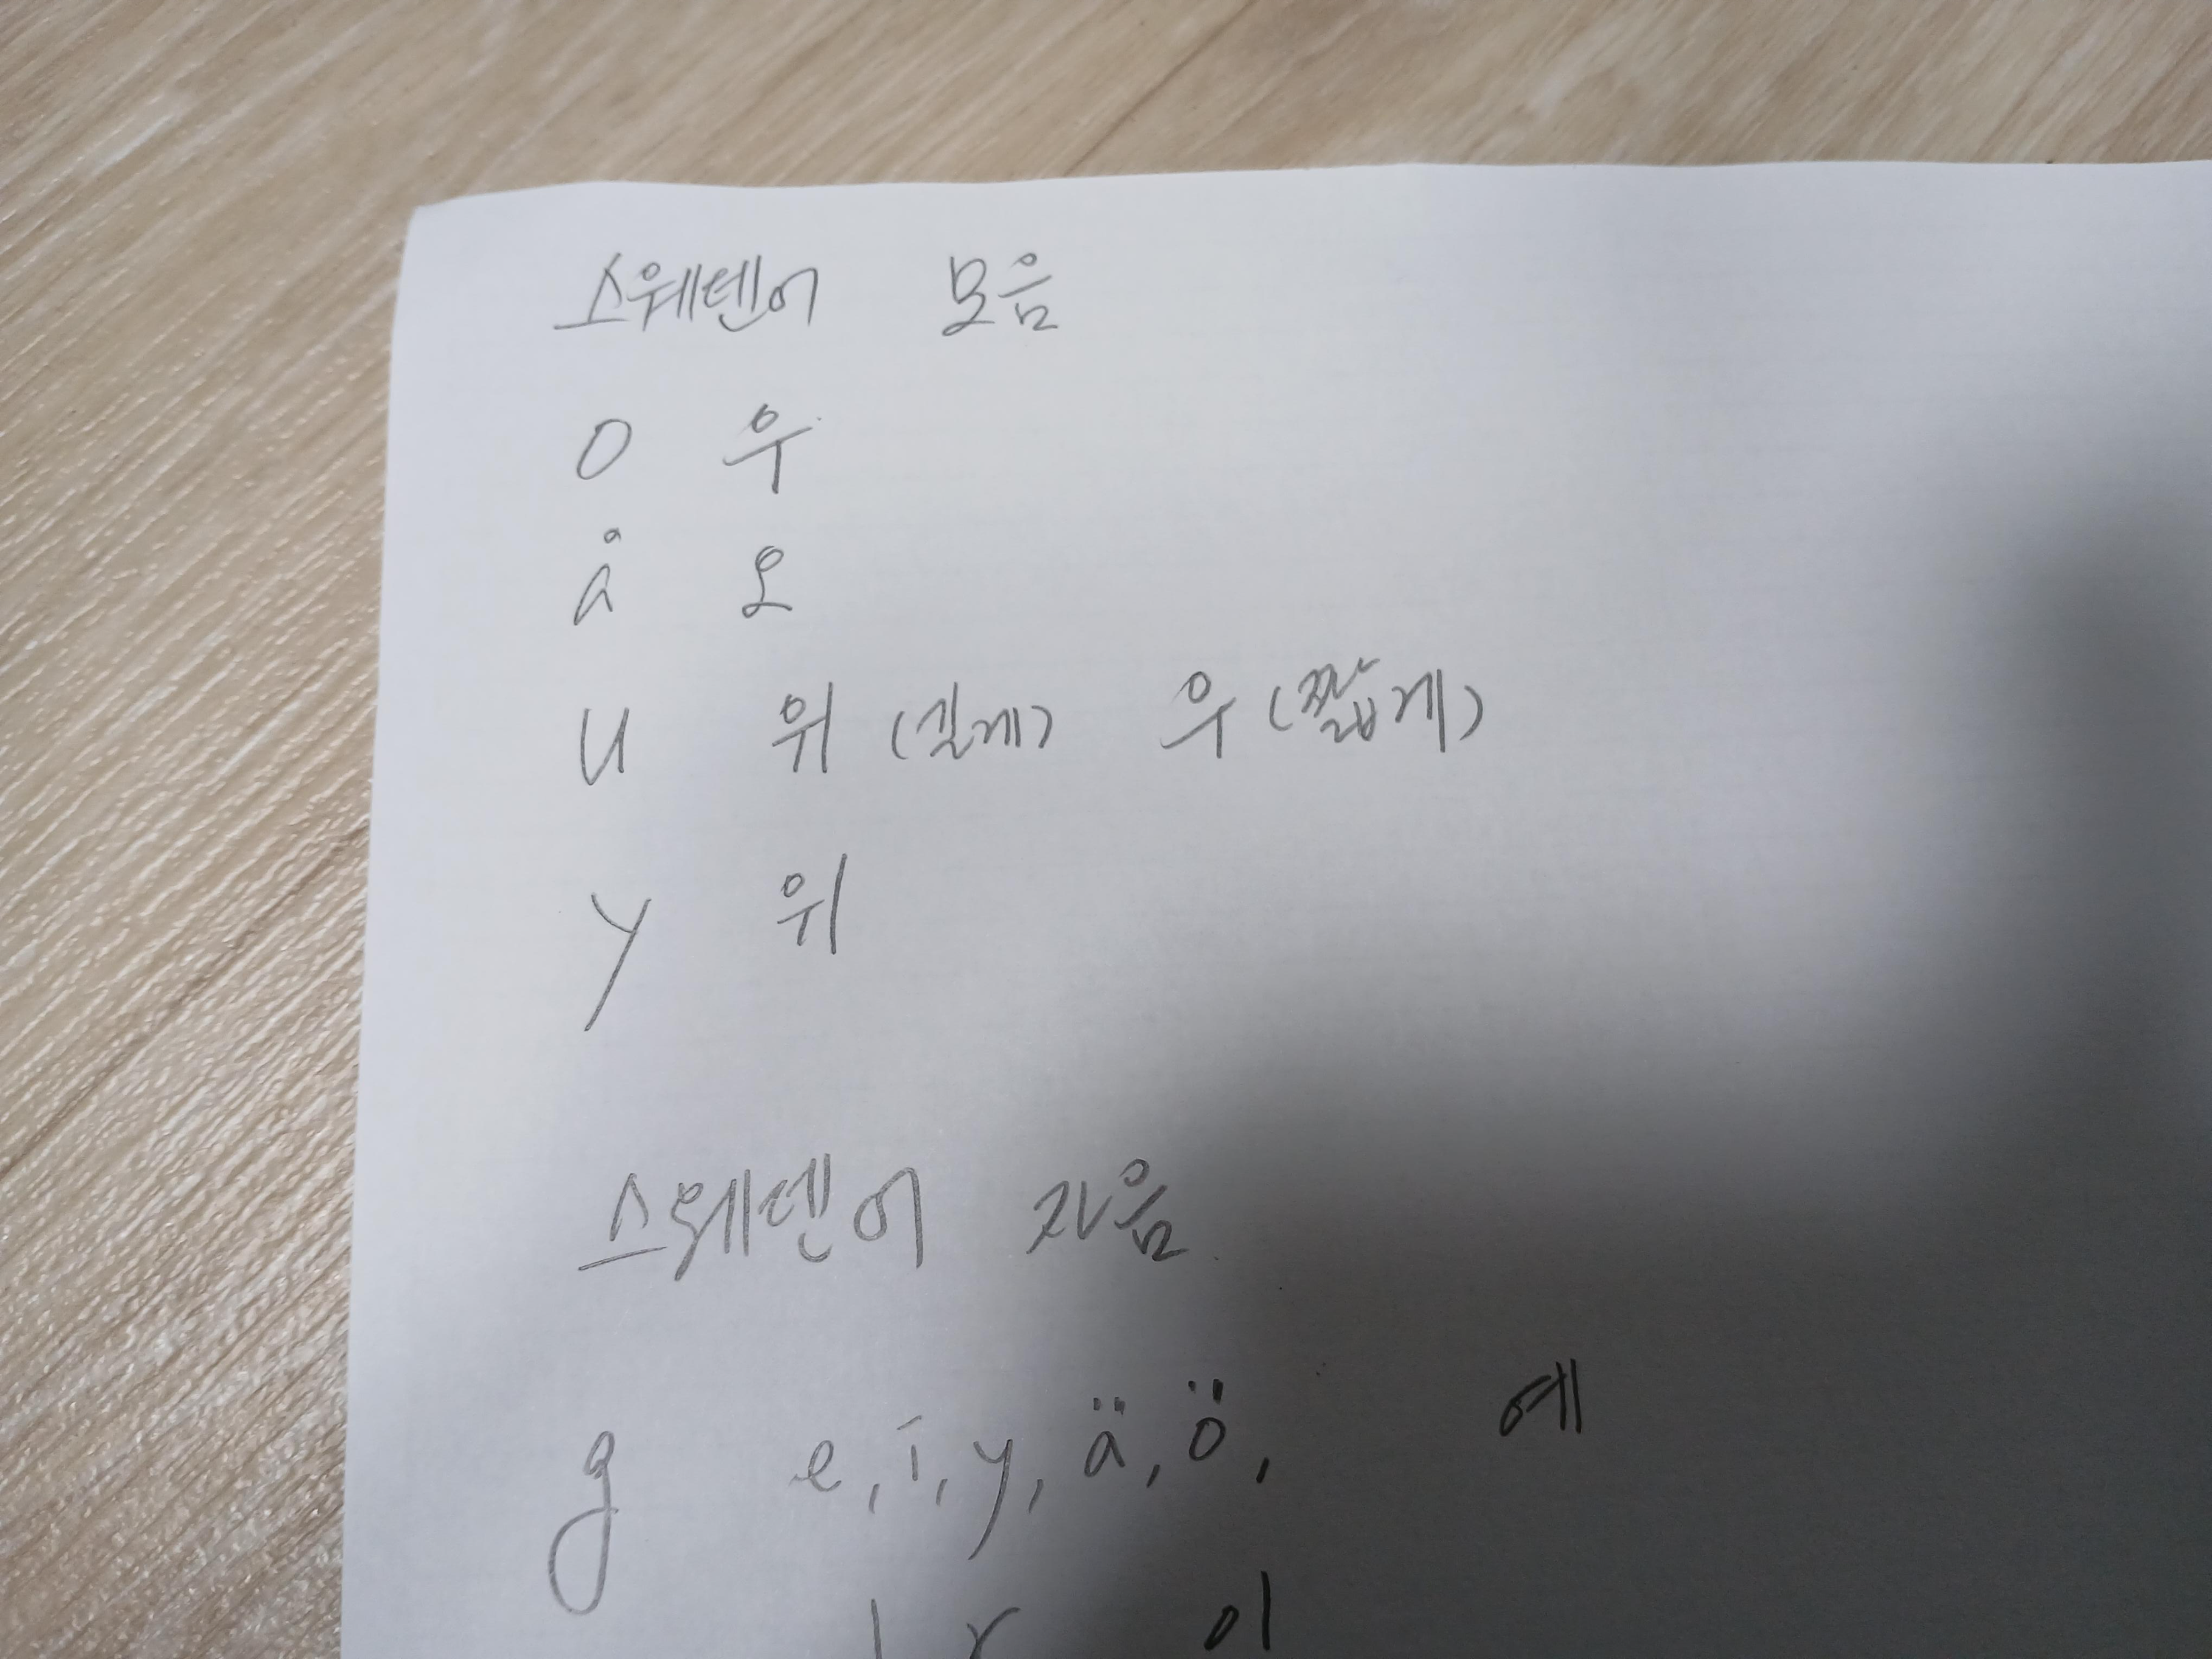 스웨덴어 모음
o 우
å 오
u 위 (길게) 우 (짧게)
y 위
스웨덴어 자음
g e, i, y, ä, ö, 예
l r 이